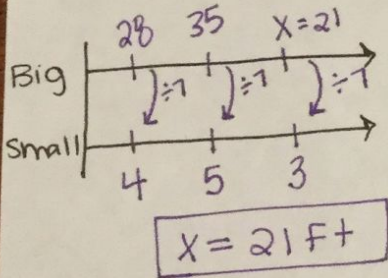 28 35 X=21
Big
÷7 ÷7 ÷7
Small
4 5 3
X = 21 Ft